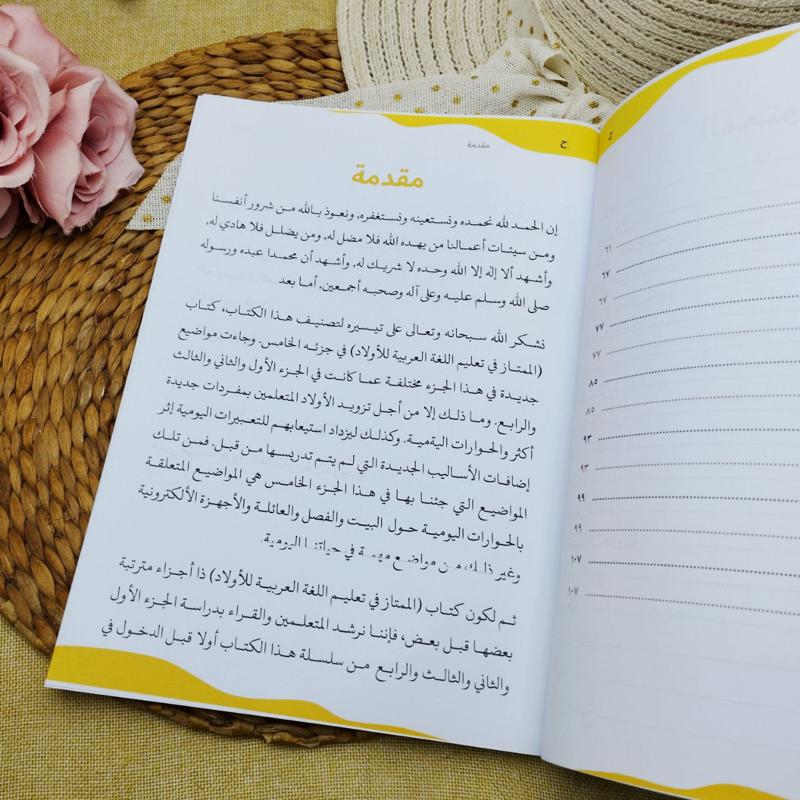 ح
مقدمة
مقدمة
إن الحمد لله نحمده ونستعينه ونستغفره، ونعوذ بالله من شرور أنفسنا
ومن سيئات أعمالنا من يهده الله فلا مضل له، ومن يضلل فلا هادي له،
وأشهد ألا إله إلا الله وحده لا شريك له، وأشهد أن محمدا عبده ورسوله
صلى الله وسلم عليه وعلى آله وصحبه أجمعين، أما بعد
نشكر الله سبحانه وتعالى على تيسيره لتصنيف هذا الكتاب، كتاب
(الممتاز في تعليم اللغة العربية للأولاد) في جزئه الخامس. وجاءت مواضيع
جديدة في هذا الجزء مختلفة عما كانت في الجزء الأول والثاني والثالث
والرابع. وما ذلك إلا من أجل تزويد الأولاد المتعلمين بمفردات جديدة
أكثر والحوارات اليةمية. وكذلك ليزداد استيعابهم للتعبيرات اليومية إثر
إضافات الأساليب الجديدة التي لم يتم تدريسها من قبل. فمن تلك
المواضيع التي جئنا بها في هذا الجزء الخامس هي المواضيع المتعلقة
بالحوارات اليومية حول البيت والفصل والعائلة والأجهزة الألكترونية
وغير ذلك من مواضع مهمة في حياتنا اليومية.
ثم لكون كتاب (الممتاز في تعليم اللغة العربية للأولاد) ذا أجزاء مترتبة
بعضها قبل بعض، فإننا نرشد المتعلمين والقراء بدراسة الجزء الأول
والثاني والثالث والرابع من سلسلة هذا الكتاب أولا قبل الدخول في
٦١
٦٧
٦٧
٧٧
٧٧
٨٥
٨٥
٩٣
٩٣
٩٩
٩٩
١٠٧
١٠٧